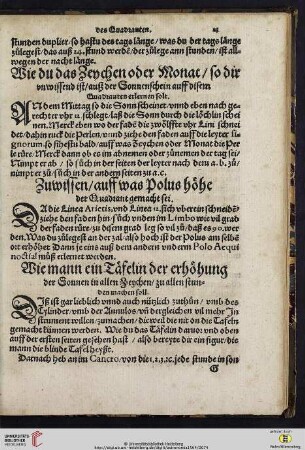 des Quadranten.
stunden duplier / so hastu des tags länge / was du der tags länge
zülegest / das auß 24. stund werdē / der zülege ann stunden / ist all=
wegen der nacht länge.
Wie du das Zeychen oder Monat / so dir
vnwissend ist / auß der Sonnenschein auff disem
Quadranten erlernen solt.
AN dem Mittag so die Sonn scheinet / vnnd eben nach ge=
rechter vhr 12. schlegt / laß die Sonn durch die löchlin schei
nen. Merck eben wo der fadē die zwölffte vhr Lini schnei
det / dahin ruck die Perlen / vnnd ziehe den faden auff die leyter Si
gnorum / so sihestu bald / auff was Zeychen oder Monat die Per
le rüre. Merck dann ob es im abnemen oder zünemen der tag sei /
Nimpt er ab / so süch in der seiten der leyter nach dem a. b. zü=
nimpt er / so süch in der andern seiten 2. a. c.
Zuwissen / auff was Polus höhe
der Quadrant gemacht sei.
DA die Linea Arietis, vnd Linea 12. sich vberein schneidē /
ziehe den faden hin / süch vnden im Limbo wie vil grad
der faden rüre / zu disem grad leg so vil zü / daß es 90. wer
den. Was du zülegest an der zal / also hoch ist der Polus am selbē
ort erhöhet Dann je eins auß dem andern vnderm Polo Aequi
noctial müß erlernet werden.
Wie mann ein Täfelin der erhöhung
der Sonnen in allen Zeychen / zu allen stun=
den machen soll.
DIß ist gar lieblich vnnd auch nützlich zuthün / vmb des
Cylinder / vmb der Annulos / vñ dergleichen vil mehr In
strument willen / zumachen / die weil die nit on die Tafeln
gemacht künnen werden. Wie du das Täfelin da vor vnd oben
auff der ersten seiten gesehen hast / also bereyte dir ein figur / die
mann die blinde Tafel heyßt.
Darnach heb an im Cancro, von die 1. 2. 3. 2c. jede stunde in son
G
UNIVERSITÄTS-
BIBLIOTHEK
HEIDELBERG
© Universitätsbibliothek Heidelberg